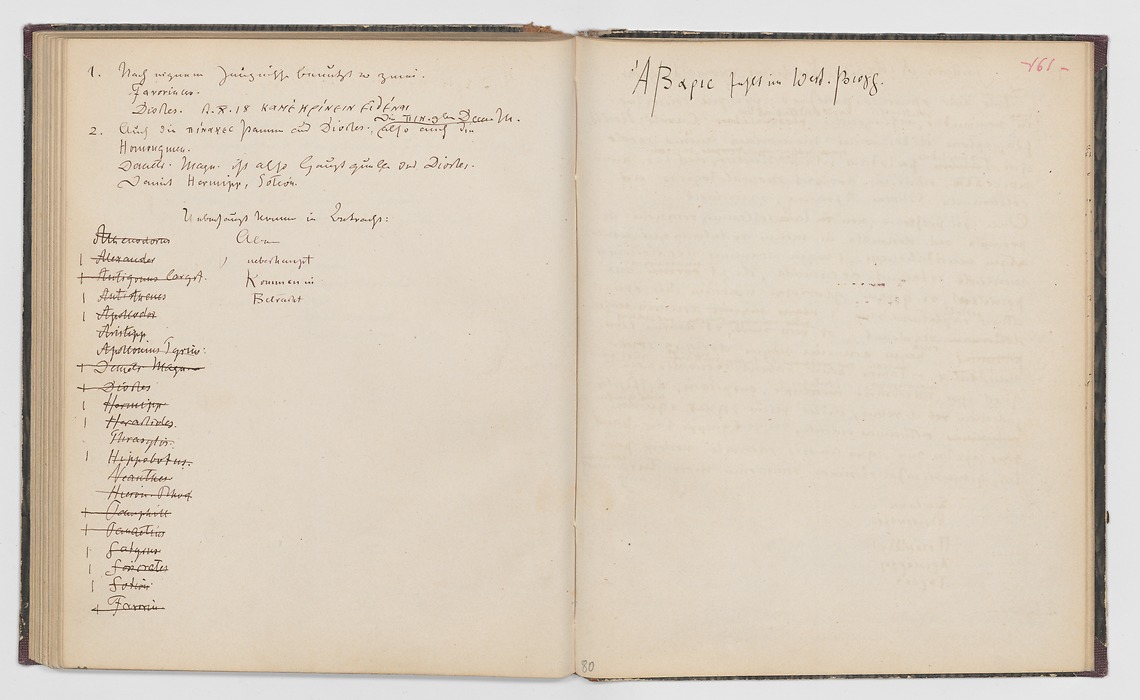 1. Nach eignem Zeugnisse benutzt er zwei.
Favorinus.
Diocles.
Die πιν. des Dem. M.
2. Auch die πίνακες stammen aus Diocles, also auch die
Homonymen.
Demetr. Magn. ist also Hauptquelle des Diocles.
Damit Hermipp, Sotion.
Ueberhaupt kommen in Betracht:
Athenodorus
Alexander
Antigonus Caryst.
Antisthenes
Apollodor
Aristipp
Apollonius Tyrius.
Demetr. Magn.
Diocles
Hermipp
Heraclides.
Thrasyllus.
Hippobotus.
Neanthes
Hieron. Rhod
Pamphila
Panaetius
Satyrus
Sosicrates
Sotion
Favorin
ueberhaupt
Kommen in
Betracht
161
Ἄβαρις fehlt in West. βιογρ.
80